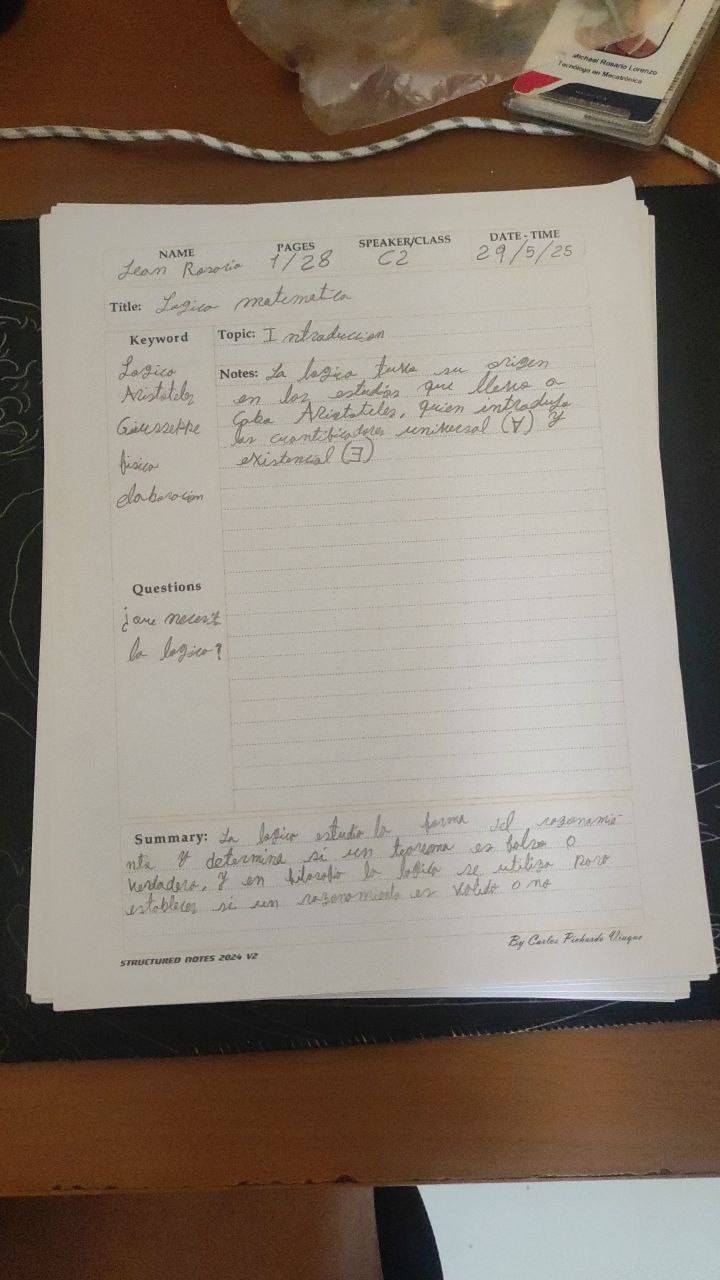 Michael Rosario Lorenzo
Tecnólogo en Mecatrónica
NAME PAGES SPEAKER/CLASS DATE - TIME
Jean Rosario 1/28 C2 29/5/25
Title: Logica matematica
Keyword
Topic: Introduccion
Logica
Aristoteles
Giusseppe
fisica
elaboracion
Notes: La logica tuvo su origen
en los estudios que llevo a
cabo Aristoteles, quien introdujo
los cuantificadores universal (∀) y
existencial (∃)
Questions
¿que necesita
la logica?
Summary: La logica estudia la forma del razonamie-
nto y determina si un teorema es falso o
verdadero, y en filosofia la logica se utiliza para
establecer si un razonamiento es valido o no
STRUCTURED NOTES 2024 V2
By Carlos Pichardo Viuque